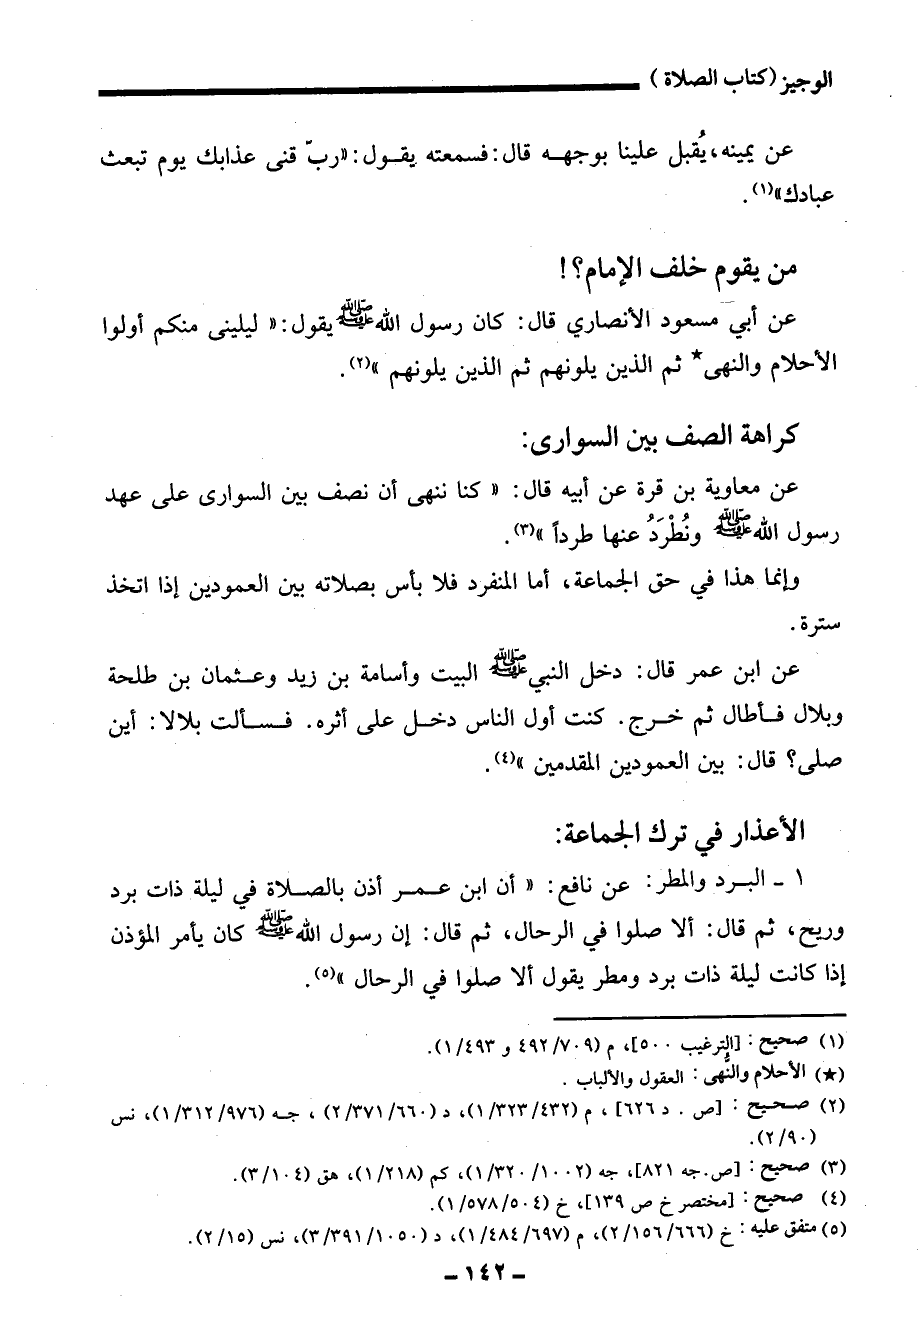 الوجيز (كتاب الصلاة)
عن يمينه، يُقبل علينا بوجهه قال: فسمعته يقول: «ربّ قنى عذابك يوم تبعث
عبادك»(١).
من يقوم خلف الإمام؟!
عن أبي مسعود الأنصاري قال: كان رسول الله ﷺ يقول: « ليلينى منكم أولوا
الأحلام والنهى★ ثم الذين يلونهم ثم الذين يلونهم »(٢).
كراهة الصف بين السوارى:
عن معاوية بن قرة عن أبيه قال: « كنا ننهى أن نصف بين السوارى على عهد
رسول الله ﷺ ونُطْرَدُ عنها طرداً »(٣).
وإنما هذا في حق الجماعة، أما المنفرد فلا بأس بصلاته بين العمودين إذا اتخذ
سترة.
عن ابن عمر قال: دخل النبي ﷺ البيت وأسامة بن زيد وعثمان بن طلحة
وبلال فأطال ثم خرج. كنت أول الناس دخل على أثره. فسألت بلالا: أين
صلى؟ قال: بين العمودين المقدمين »(٤).
الأعذار في ترك الجماعة:
١ ـ البرد والمطر: عن نافع: « أن ابن عمر أذن بالصلاة في ليلة ذات برد
وريح، ثم قال: ألا صلوا في الرحال، ثم قال: إن رسول الله ﷺ كان يأمر المؤذن
إذا كانت ليلة ذات برد ومطر يقول ألا صلوا في الرحال »(٥).
(١) صحيح: [الترغيب ٥٠٠]، م (٤٩٢/٧٠٩ و ١/٤٩٣).
(★) الأحلام والنُّهى: العقول والألباب .
(٢) صحيح: [ص . د ٦٢٦] ، م (١/٣٢٣/٤٣٢)، د (٢/٣٧١/٦٦٠) ، جه (١/٣١٢/٩٧٦)، نس
(٢/٩٠).
(٣) صحيح: [ص.جه ٨٢١]، جه (١/٣٢٠/١٠٠٢)، كم (١/٢١٨)، هق (٣/١٠٤).
(٤) صحيح: [مختصر خ ص ١٣٩]، خ (١/٥٧٨/٥٠٤).
(٥) متفق عليه: خ (٢/١٥٦/٦٦٦)، م (١/٤٨٤/٦٩٧)، د (٣/٣٩١/١٠٥٠)، نس (٢/١٥).
ـ ١٤٢ ـ